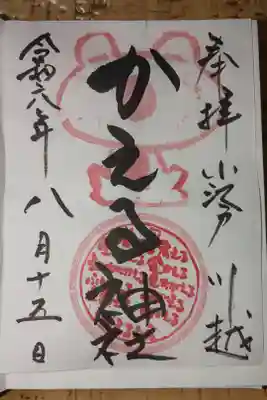 奉拝 小江戸 川越
かえる神社
令和六年八月十五日